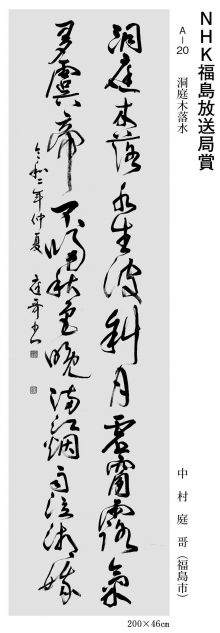 NHK福島放送局賞
A-20　洞庭木落水
中村庭哥（福島市）
洞庭木落水生波斜月雲霄露氣
多虞帝不帰秋色晩満江烟雨泣湘娥
令和二年仲夏　庭哥書
200×46cm